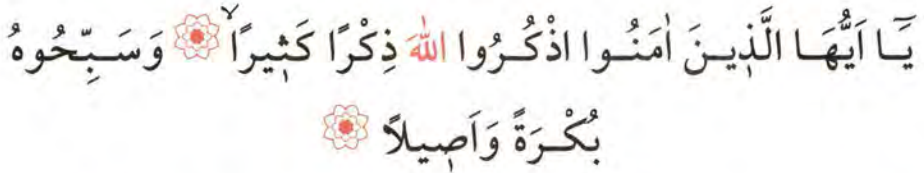 يَٓا اَيُّهَا الَّذ۪ينَ اٰمَنُوا اذْكُرُوا اللّٰهَ ذِكْرًا كَث۪يرًاۙ ۝ وَسَبِّحُوهُ
بُكْرَةً وَاَص۪يلًا ۝